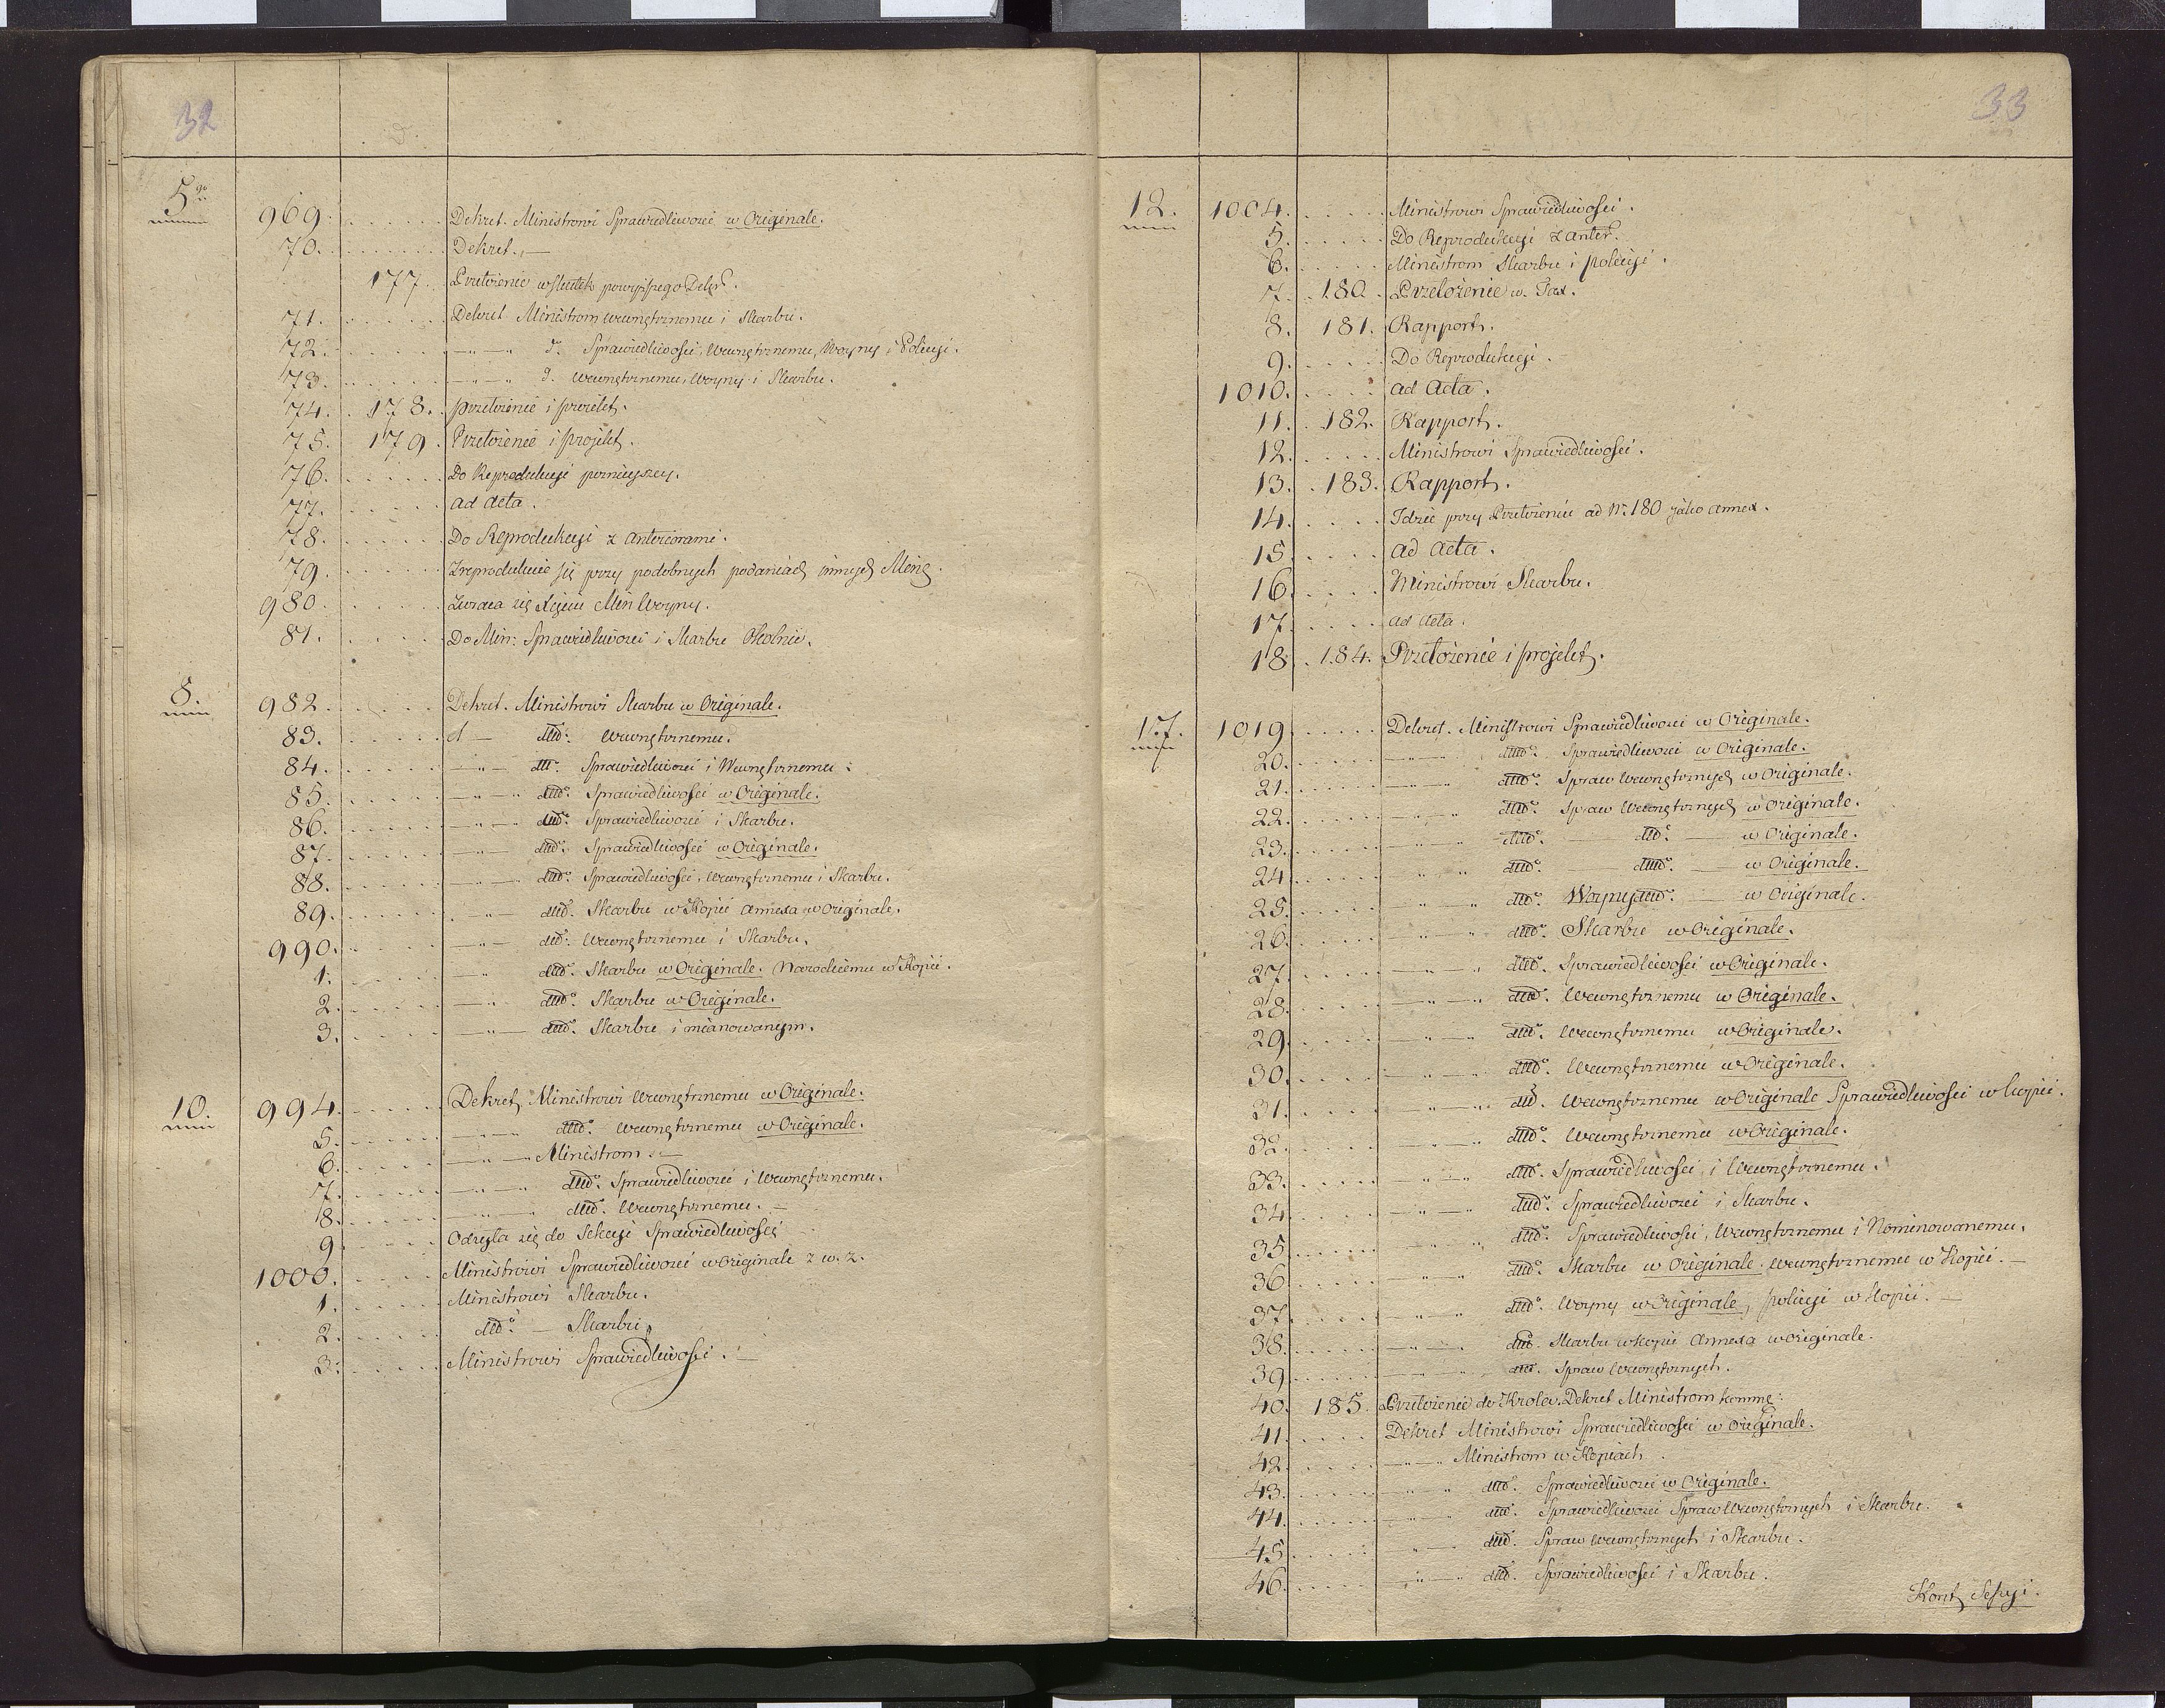 32
5go
969. Dekret. Ministrowi Sprawiedliwości w Originale.
70. Dekret.
177. Przełożenie wskutek powyższego Dekr.
71. Dekret Ministrom Wewnętrznemu i Skarbu.
72. — " — d. Sprawiedliwości, Wewnętrznemu, Woyny i Policyi.
73. — " — d. Wewnętrznemu, Woyny i Skarbu.
74. 178. przełożenie i proiekt.
75. 179. Przełożenie i projekt.
76. Do Reprodukcyi
77. ad acta.
78. Do Reprodukcyi z anteriorami.
79. Zreprodukuie się przy podobnych podaniach innych Min
980. Zwraca się Min Woyny.
81. Do Min: Sprawiedliwości i Skarbu
8.
982. Dekret. Ministrowi Skarbu w Originale.
83. d — dttd: Wewnętrznemu.
84. — " — dtt. Sprawiedliwości i Wewnętrznemu.
85. — " — dttd: Sprawiedliwości w Originale.
86. — " — dttd: Sprawiedliwości i Skarbu.
87. — " — dttd: Sprawiedliwości w Originale.
88. — " — dttd: Sprawiedliwości, Wewnętrznemu i Skarbu.
89. — " — dttd. Skarbu w Kopii Annexa w Originale.
990. — " — dttd: Wewnętrznemu i Skarbu.
1. — " dttd. Skarbu w Originale. w Kopii.
2. — " dttd: Skarbu w Originale.
3. — " — dttd. Skarbu i mianowanym.
10.
994. Dekret Ministrowi Wewnętrznemu w Originale.
5. — " — dttd. Wewnętrznemu w Originale.
6. — " — Ministrom. —
7. — " — dttd. Sprawiedliwości i Wewnętrznemu.
8. — " — dttd. Wewnętrznemu. —
9. Odsyła się do Sekcyi Sprawiedliwości
1000. Ministrowi Sprawiedliwości w Originale z w. z.
1. Ministrowi Skarbu.
2. dttd: — Skarbu
3. Ministrowi Sprawiedliwości. —
33
12.
1004. Ministrowi Sprawiedliwości.
5. Do Reprodukcyi z anter.
6. Ministrom Skarbu i policyi.
7. 180. Przełożenie
8. 181. Rapport.
9. Do Reprodukcyi.
1010. ad acta.
11. 182. Rapport.
12. Ministrowi Sprawiedliwości.
13. 183. Rapport.
14. Idzie przy Przełożeniu ad N. 180 jako annex.
15. ad acta.
16. Ministrowi Skarbu.
17. ad acta.
18. 184. Przełożenie i projekt.
17.
1019. Dekret. Ministrowi Sprawiedliwości w Originale.
20. — " — dttd: Sprawiedliwości w Originale.
21. — " — dttd. Spraw Wewnętrznych w Originale.
22. — " — dttd. Spraw Wewnętrznych w Originale.
23. — " — dttd. — dttd. — w Originale.
24. " " dttd. — dttd. — w Originale.
25. — " — dttd. Woyny dttd. — w Originale.
26. — " — dttd. Skarbu w Originale.
27. — " — dttd. Sprawiedliwości w Originale.
28. — " — dttd. Wewnętrznemu w Originale.
29. — " — dttd. Wewnętrznemu w Originale.
30. — " — dttd. Wewnętrznemu w Originale.
31. — " — dtd. Wewnętrznemu w Originale Sprawiedliwości w kopii.
32. — " — dttd. Wewnętrznemu w Originale.
33. — " — dttd. Sprawiedliwości i Wewnętrznemu.
34. — " — dttd. Sprawiedliwości i Skarbu.
35. — " — dttd. Sprawiedliwości, Wewnętrznemu i Nominowanemu.
36. — " — dttd. Skarbu w Originale. Wewnętrznemu w Kopii. —
37. — " — dttd. Woyny w Originale, policyi w kopii. —
38. — " — dttd. Skarbu w kopii Annexa w originale.
39. — " — dttd. Spraw Wewnętrznych.
40. 185. Przełożenie do Krolew. Dekret Ministrom
41. Dekret Ministrowi Sprawiedliwości w Originale.
42. — " — Ministrom w Kopiach
43. — " — dttd. Sprawiedliwości w Originale.
44. — " — dttd. Sprawiedliwości Spraw Wewnętrznych i Skarbu.
45. — " — dttd. Spraw Wewnętrznych i Skarbu.
46. — " — dttd. Sprawiedliwości i Skarbu.
Kont. Sessyi.